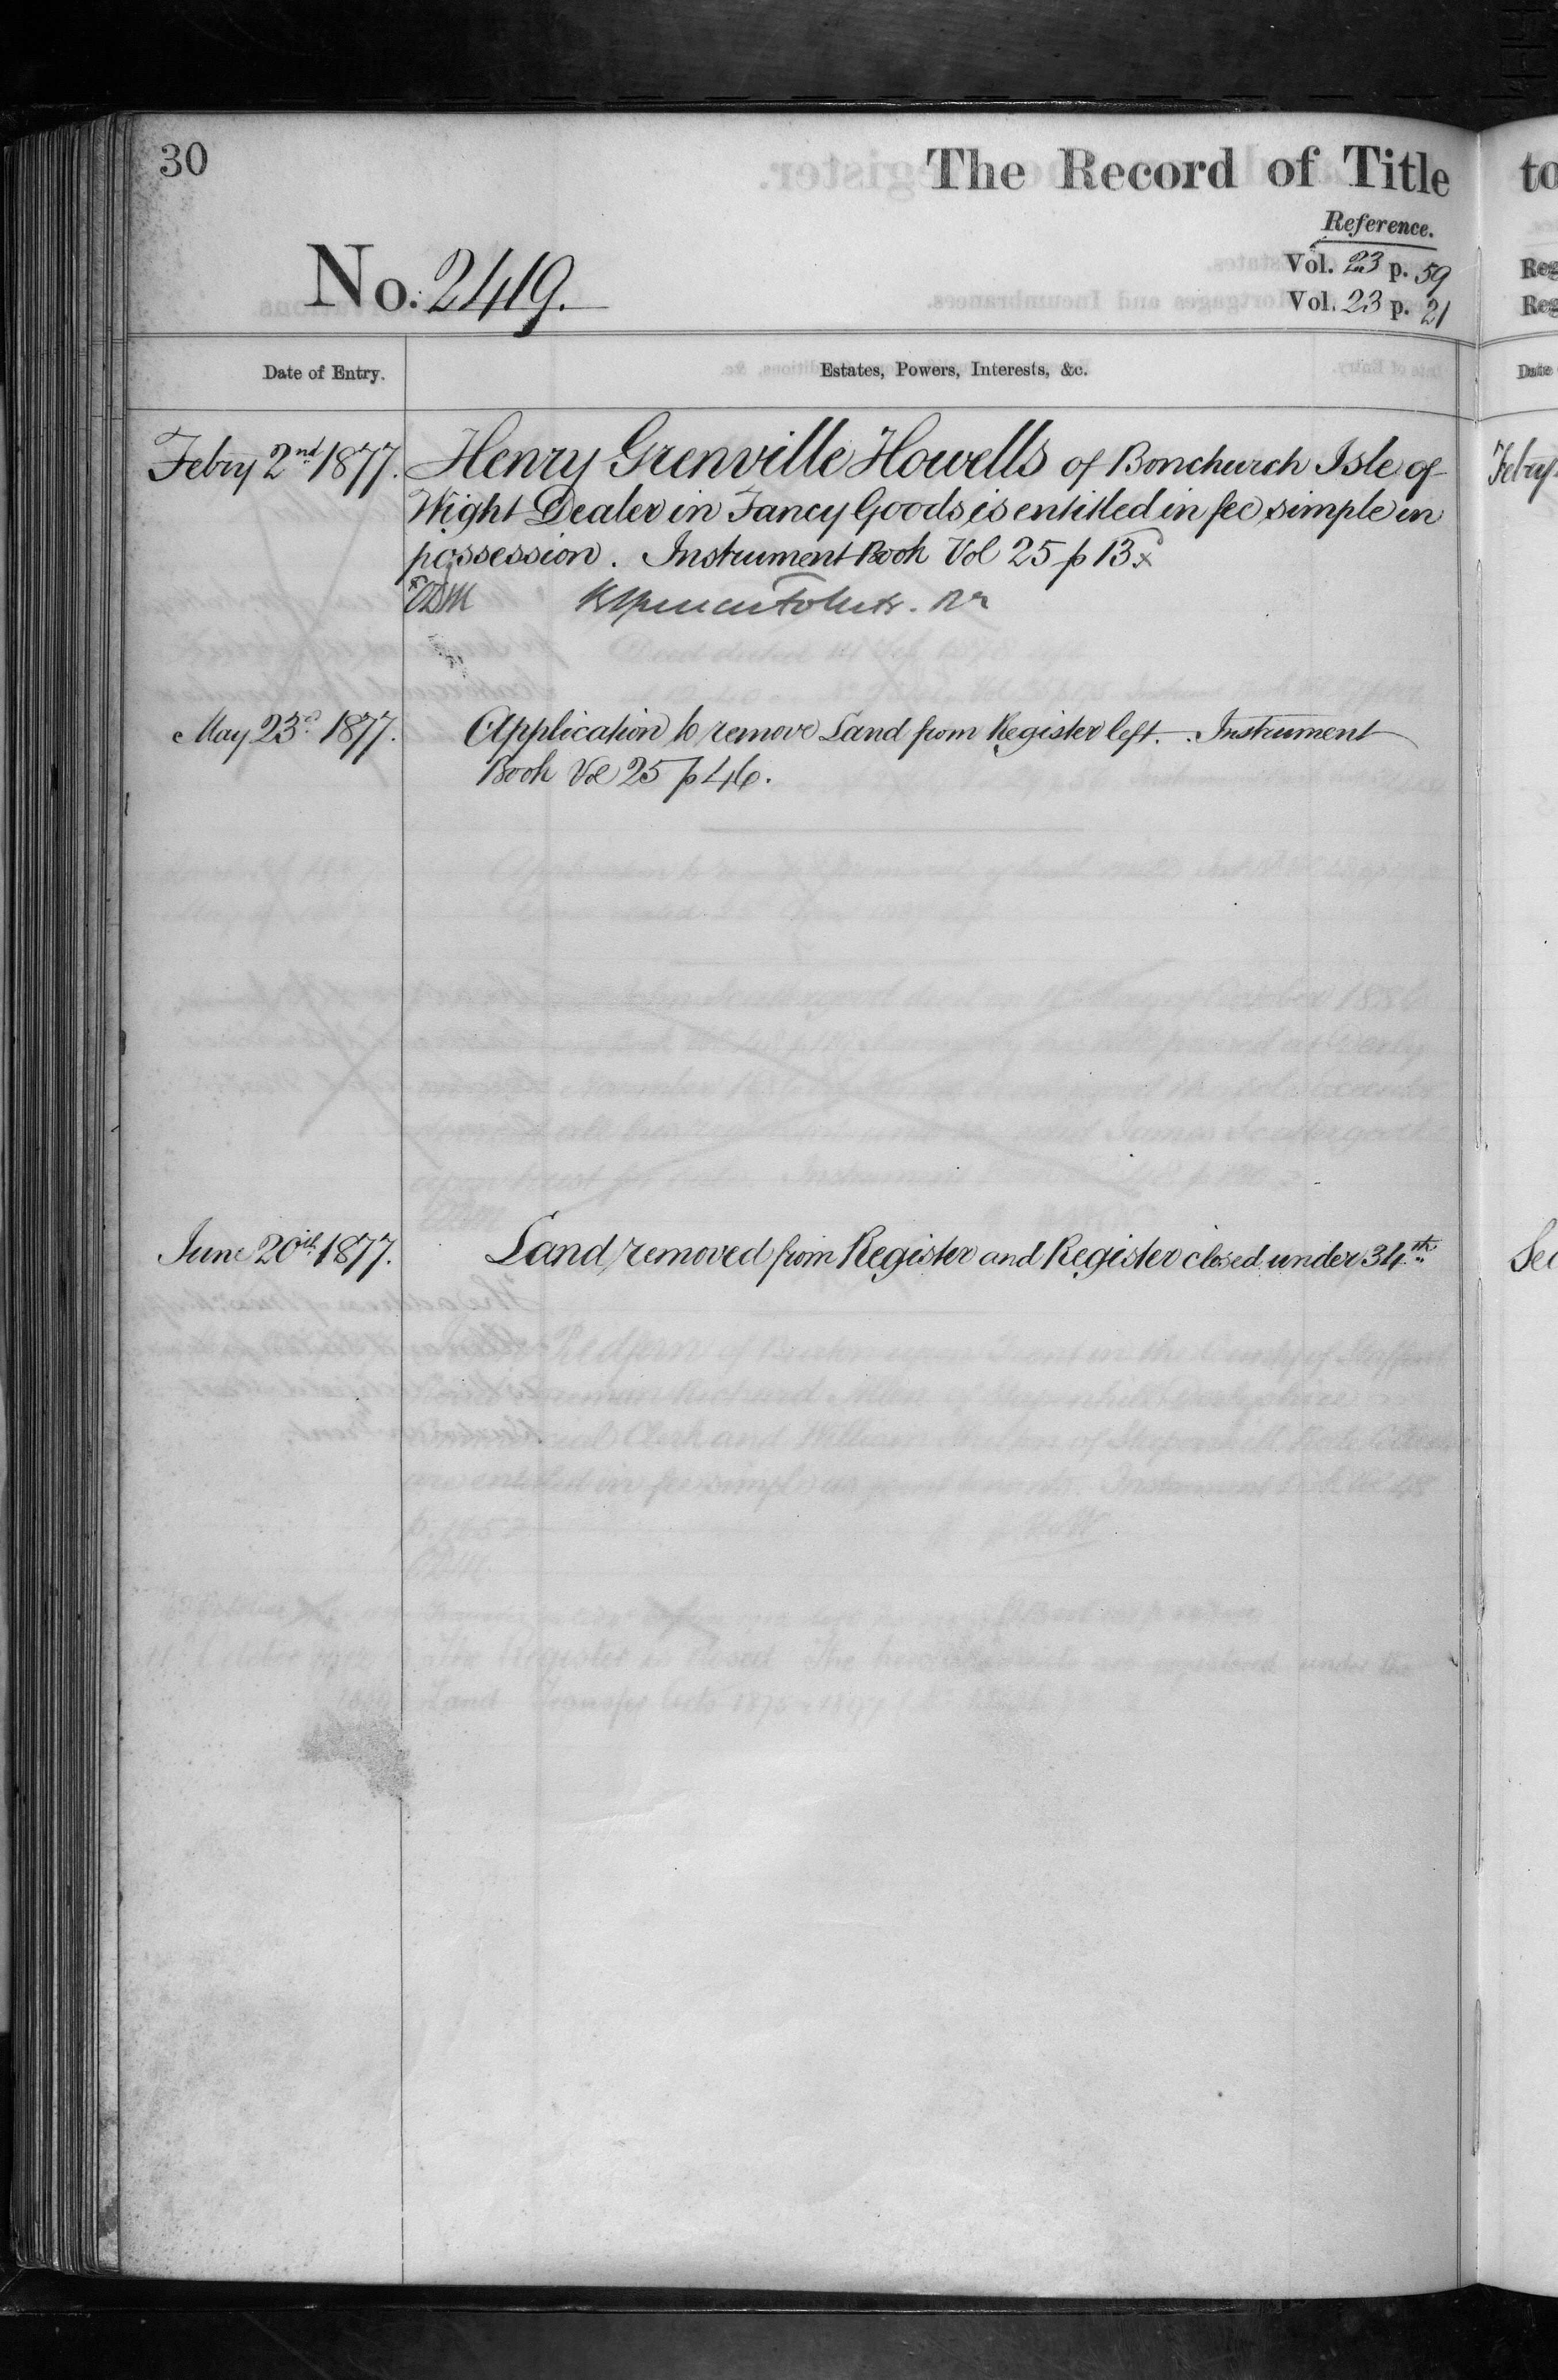 30
The Record of Title
Reference.
No. 2419.
Vol. 23 p. 59
Vol. 23 p. 21
Date of Entry.
Estates, Powers, Interests, &c.
Febry 2nd 1877.
Henry Grenville Howells of Bonchurch Isle of
Wight Dealer in Fancy Goods is entitled in fee simple in
possession. Instrument Book Vol 25 p 13 x
May 23d 1877.
Application to remove Land from Register left. Instrument
Book Vol 25 p 46.
June 20th 1877.
Land removed from Register and Register closed under 34th
to
Reg
Reg
Date
Febry
Sec